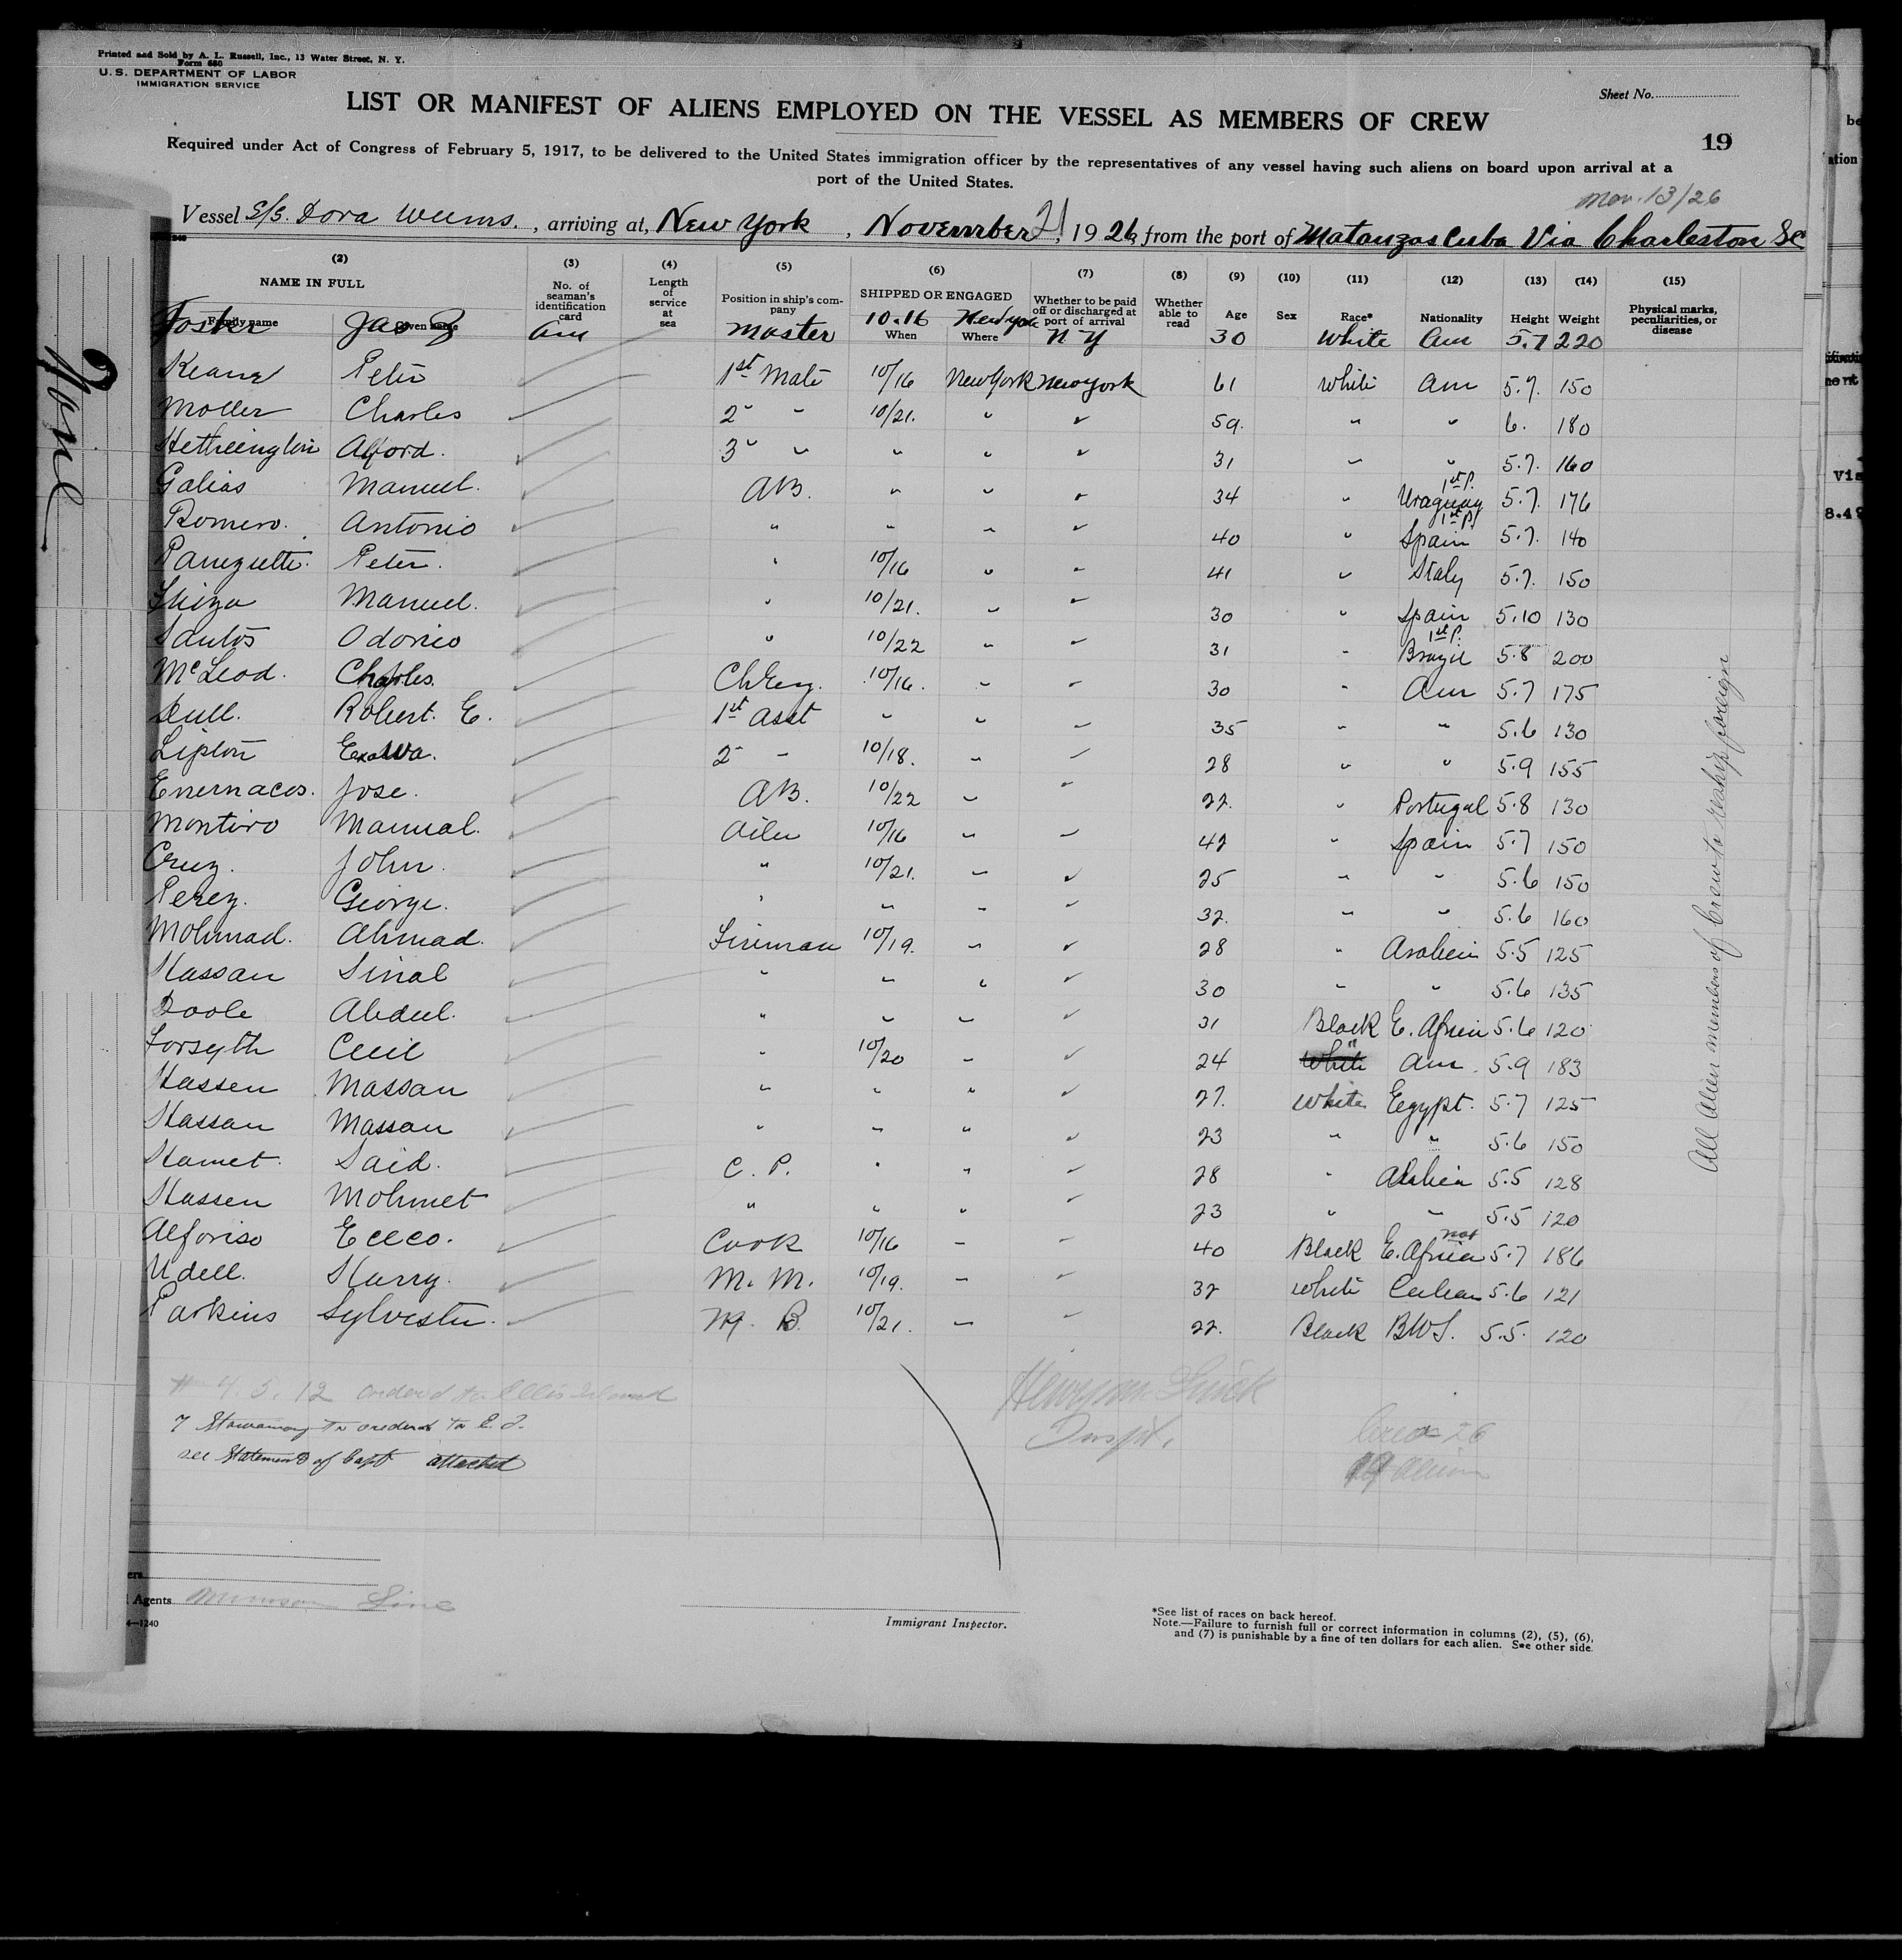 Printed and Sold by A. L. Russell, Inc., 13 Water Street, N. Y.
Form 680
U. S. DEPARTMENT OF LABOR
IMMIGRATION SERVICE
Sheet No.
LIST OR MANIFEST OF ALIENS EMPLOYED ON THE VESSEL AS MEMBERS OF CREW
19
Required under Act of Congress of February 5, 1917, to be delivered to the United States immigration officer by the representatives of any vessel having such aliens on board upon arrival at a
port of the United States.
Nov. 13/26
Vessel S/S. Dora Weems, arriving at New York, November 21, 1926, from the port of Matanzas Cuba Via Charleston SC
(2) (3) (4) (5) (6) (7) (8) (9) (10) (11) (12) (13) (14) (15)
NAME IN FULL No. of seaman's identification card Length of service at sea Position in ship's company SHIPPED OR ENGAGED Whether to be paid off or discharged at port of arrival Whether able to read Age Sex Race* Nationality Height Weight Physical marks, peculiarities, or disease
Family name Given name When Where
Foster Jas Am Master 10.16 New York N Y 30 White Am 5.7 220
Keane Peter 1st Mate 10/16 New York New York 61 White Am 5.7. 150
Moller Charles 2 " 10/21. " 59. " " 6. 180
Hetherington Alford. 3 " " " " 31 " " 5.7. 160
Galias Manuel. AB. " " 34 " 1st P. Uraguay 5.7. 176
Romero. Antonio " " " 40 " 1st P. Spain 5.7. 140
Peter. " 10/16 " 41 " Italy 5.7. 150
Manuel. " 10/21. " 30 " Spain 5.10 130
Santos Odorico " 10/22 " 31 " 1st P. Brazil 5.8 200
McLeod. Charles. Ch Eng. 10/16. " 30 " Am 5.7 175
Dull. Robert. E. 1st Asst " " 35 " " 5.6 130
Lipton 2 " 10/18. " 28 " " 5.9 155
Enernaces. Jose. AB. 10/22 " 22. " Portugal 5.8 130
Montiro Manual. Oiler 10/16 " 42 " Spain 5.7 150
Cruz. John. " 10/21. " 25 " " 5.6 150
Perez. George. " " " 32. " " 5.6 160
Mohmad. Ahmad. Fireman 10/19. " 28 " Arabien 5.5 125
Hassan Sinal " " " 30 " " 5.6 135
Doole Abdul. " " " 31 Black E. Africa 5.6 120
Forsyth Cecil " 10/20 " 24 White " Am. 5.9 183
Hassen Massan " " " 27. White Egypt. 5.7 125
Hassan Massan " " " 23 " " 5.6 150
Hamet. Said. C. P. " " 28 " Arabien 5.5 128
Hassen Mohmet " " " 23 " " 5.5 120
Alfonso Ecceo. Cook 10/16 " 40 Black E. Africa not 5.7 186
Udell. Harry. M. M. 10/19. " 32 White Cuban 5.6 121
Parkins Sylvester. M. B. 10/21. " 22. Black BWI. 5.5. 120
All Alien members of Crew to reship foreign
None
ordered to Ellis Island
7 Stowaways to ordered to E. I.
see Statement of Capt attached
Insp.
Crew 26
19 Aliens
Agents Munson Line
4—1240
Immigrant Inspector.
*See list of races on back hereof.
Note.—Failure to furnish full or correct information in columns (2), (5), (6),
and (7) is punishable by a fine of ten dollars for each alien. See other side.